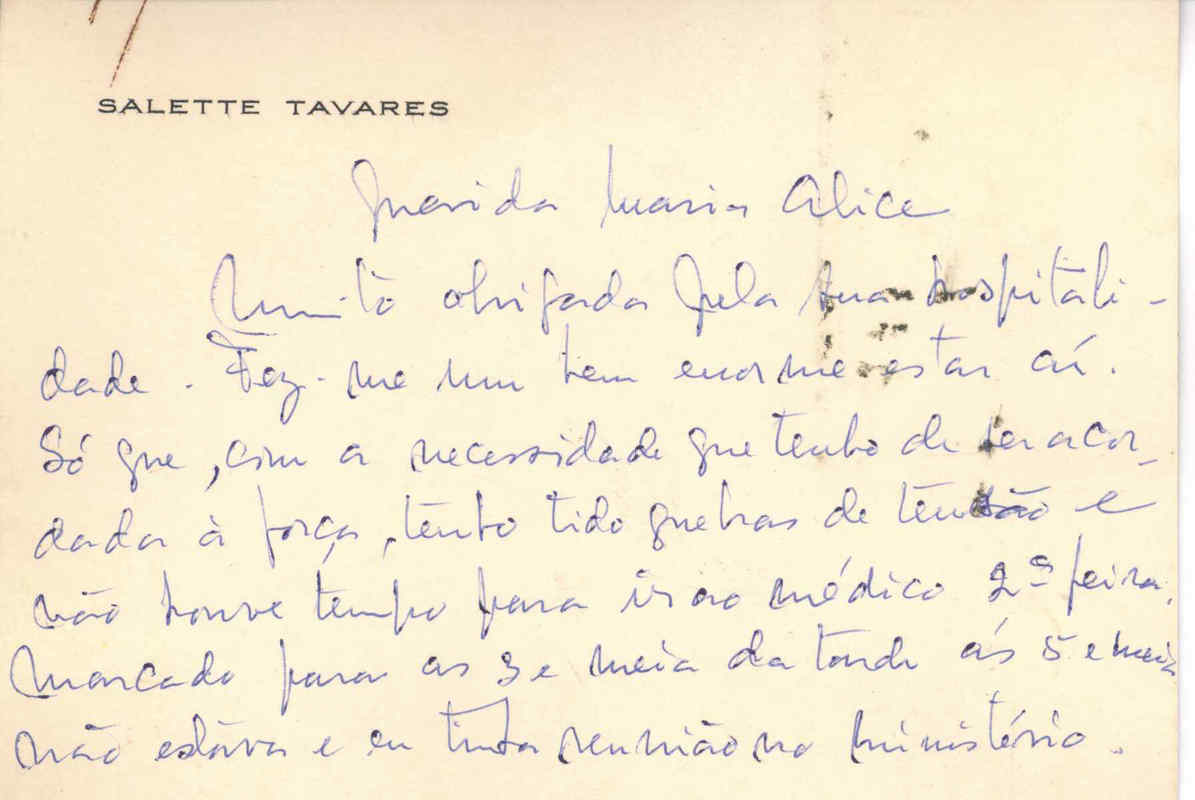 SALETTE TAVARES
Querida Maria Alice
Muito obrigada pela sua hospitali-
dade. Fez-me um bem enorme estar aí.
Só que, com a necessidade que tenho de ser acor-
dada à força, tenho tido quebras de tensão e
não houve tempo para ir ao médico 2ª feira.
Marcado para as 3 e meia da tarde às 5 e meia
não estava e eu tinha reunião no Ministério.